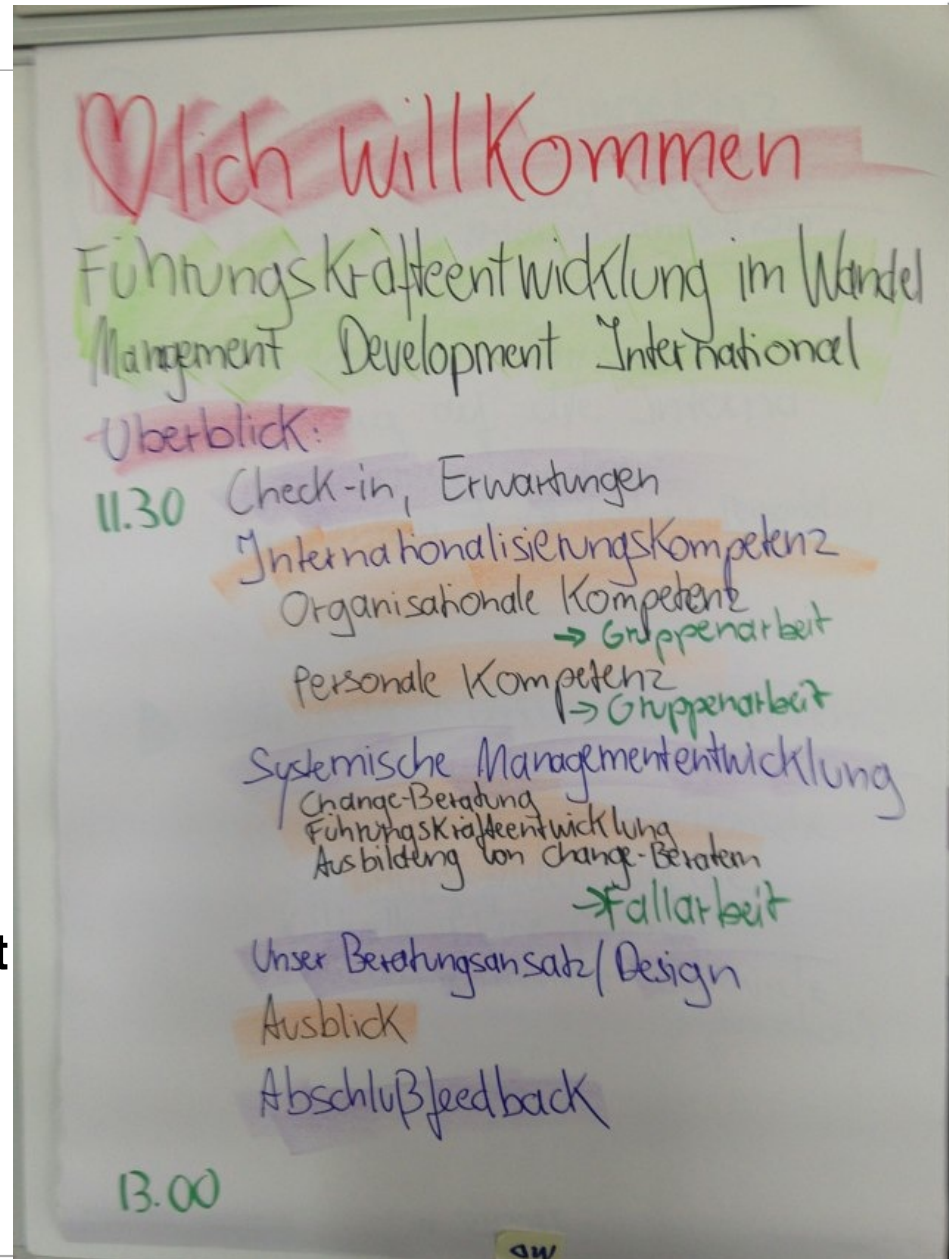 ♡lich willkommen
Führungskräfteentwicklung im Wandel
Mangement Development International
Überblick:
11.30 Check-in, Erwartungen
Internationalisierungskompetenz
Organisationale Kompetenz
→ Gruppenarbeit
Personale Kompetenz
→ Gruppenarbeit
Systemische Managemententwicklung
Change-Beratung
Führungskräfteentwicklung
Ausbildung von Change-Beratern
→ Fallarbeit
t
Unser Beratungsansatz/Design
Ausblick
Abschlußfeedback
13.00